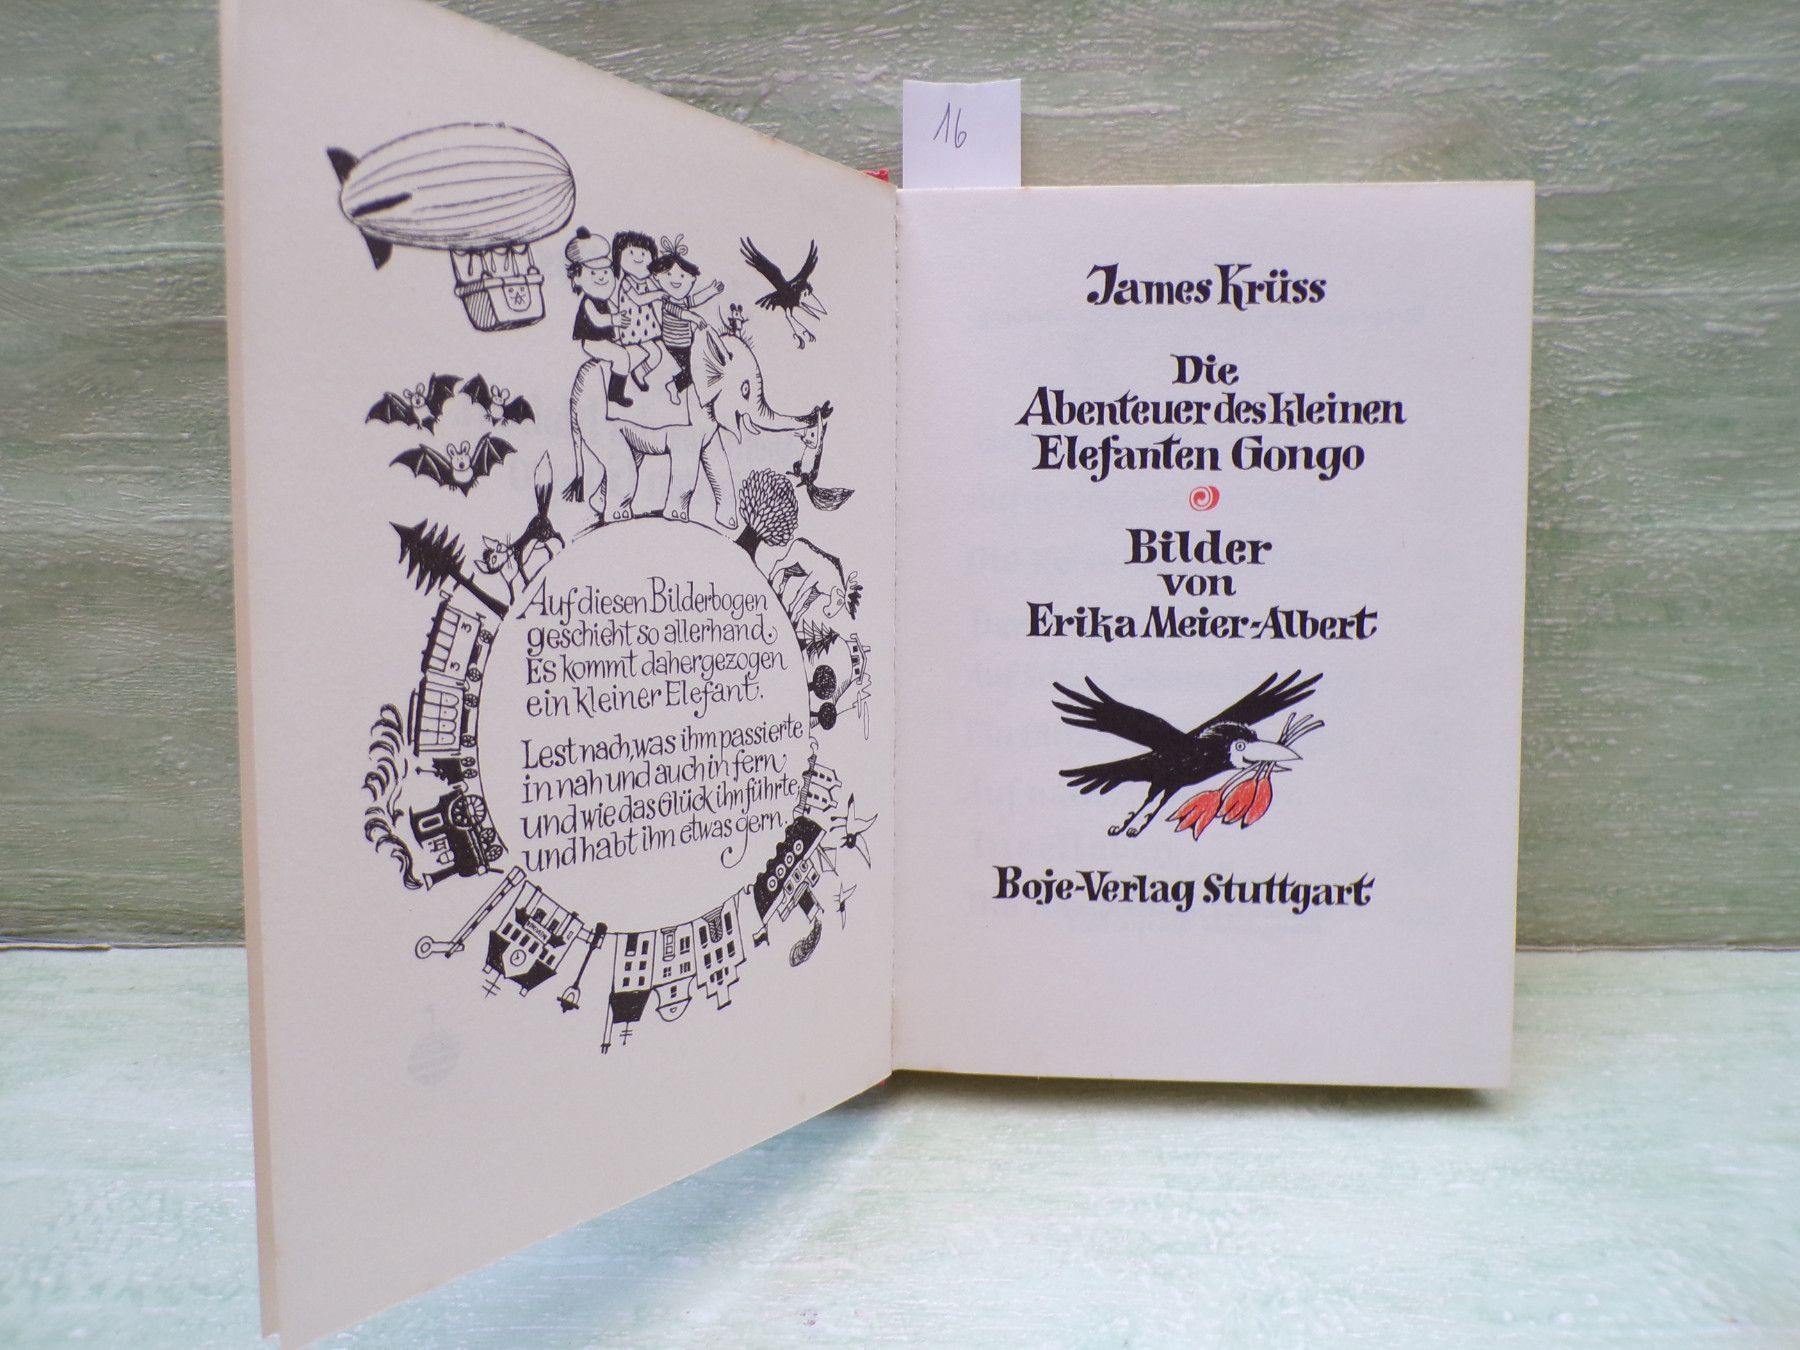 16
Auf diesen Bilderbogen
geschieht so allerhand.
Es kommt dahergezogen
ein kleiner Elefant.
Lest nach, was ihm passierte
in nah und auch in fern
und wie das Glück ihn führte,
und habt ihn etwas gern.
3
3
James Krüss
Die
Abenteuer des kleinen
Elefanten Gongo
Bilder
von
Erika Meier-Albert
Boje-Verlag Stuttgart